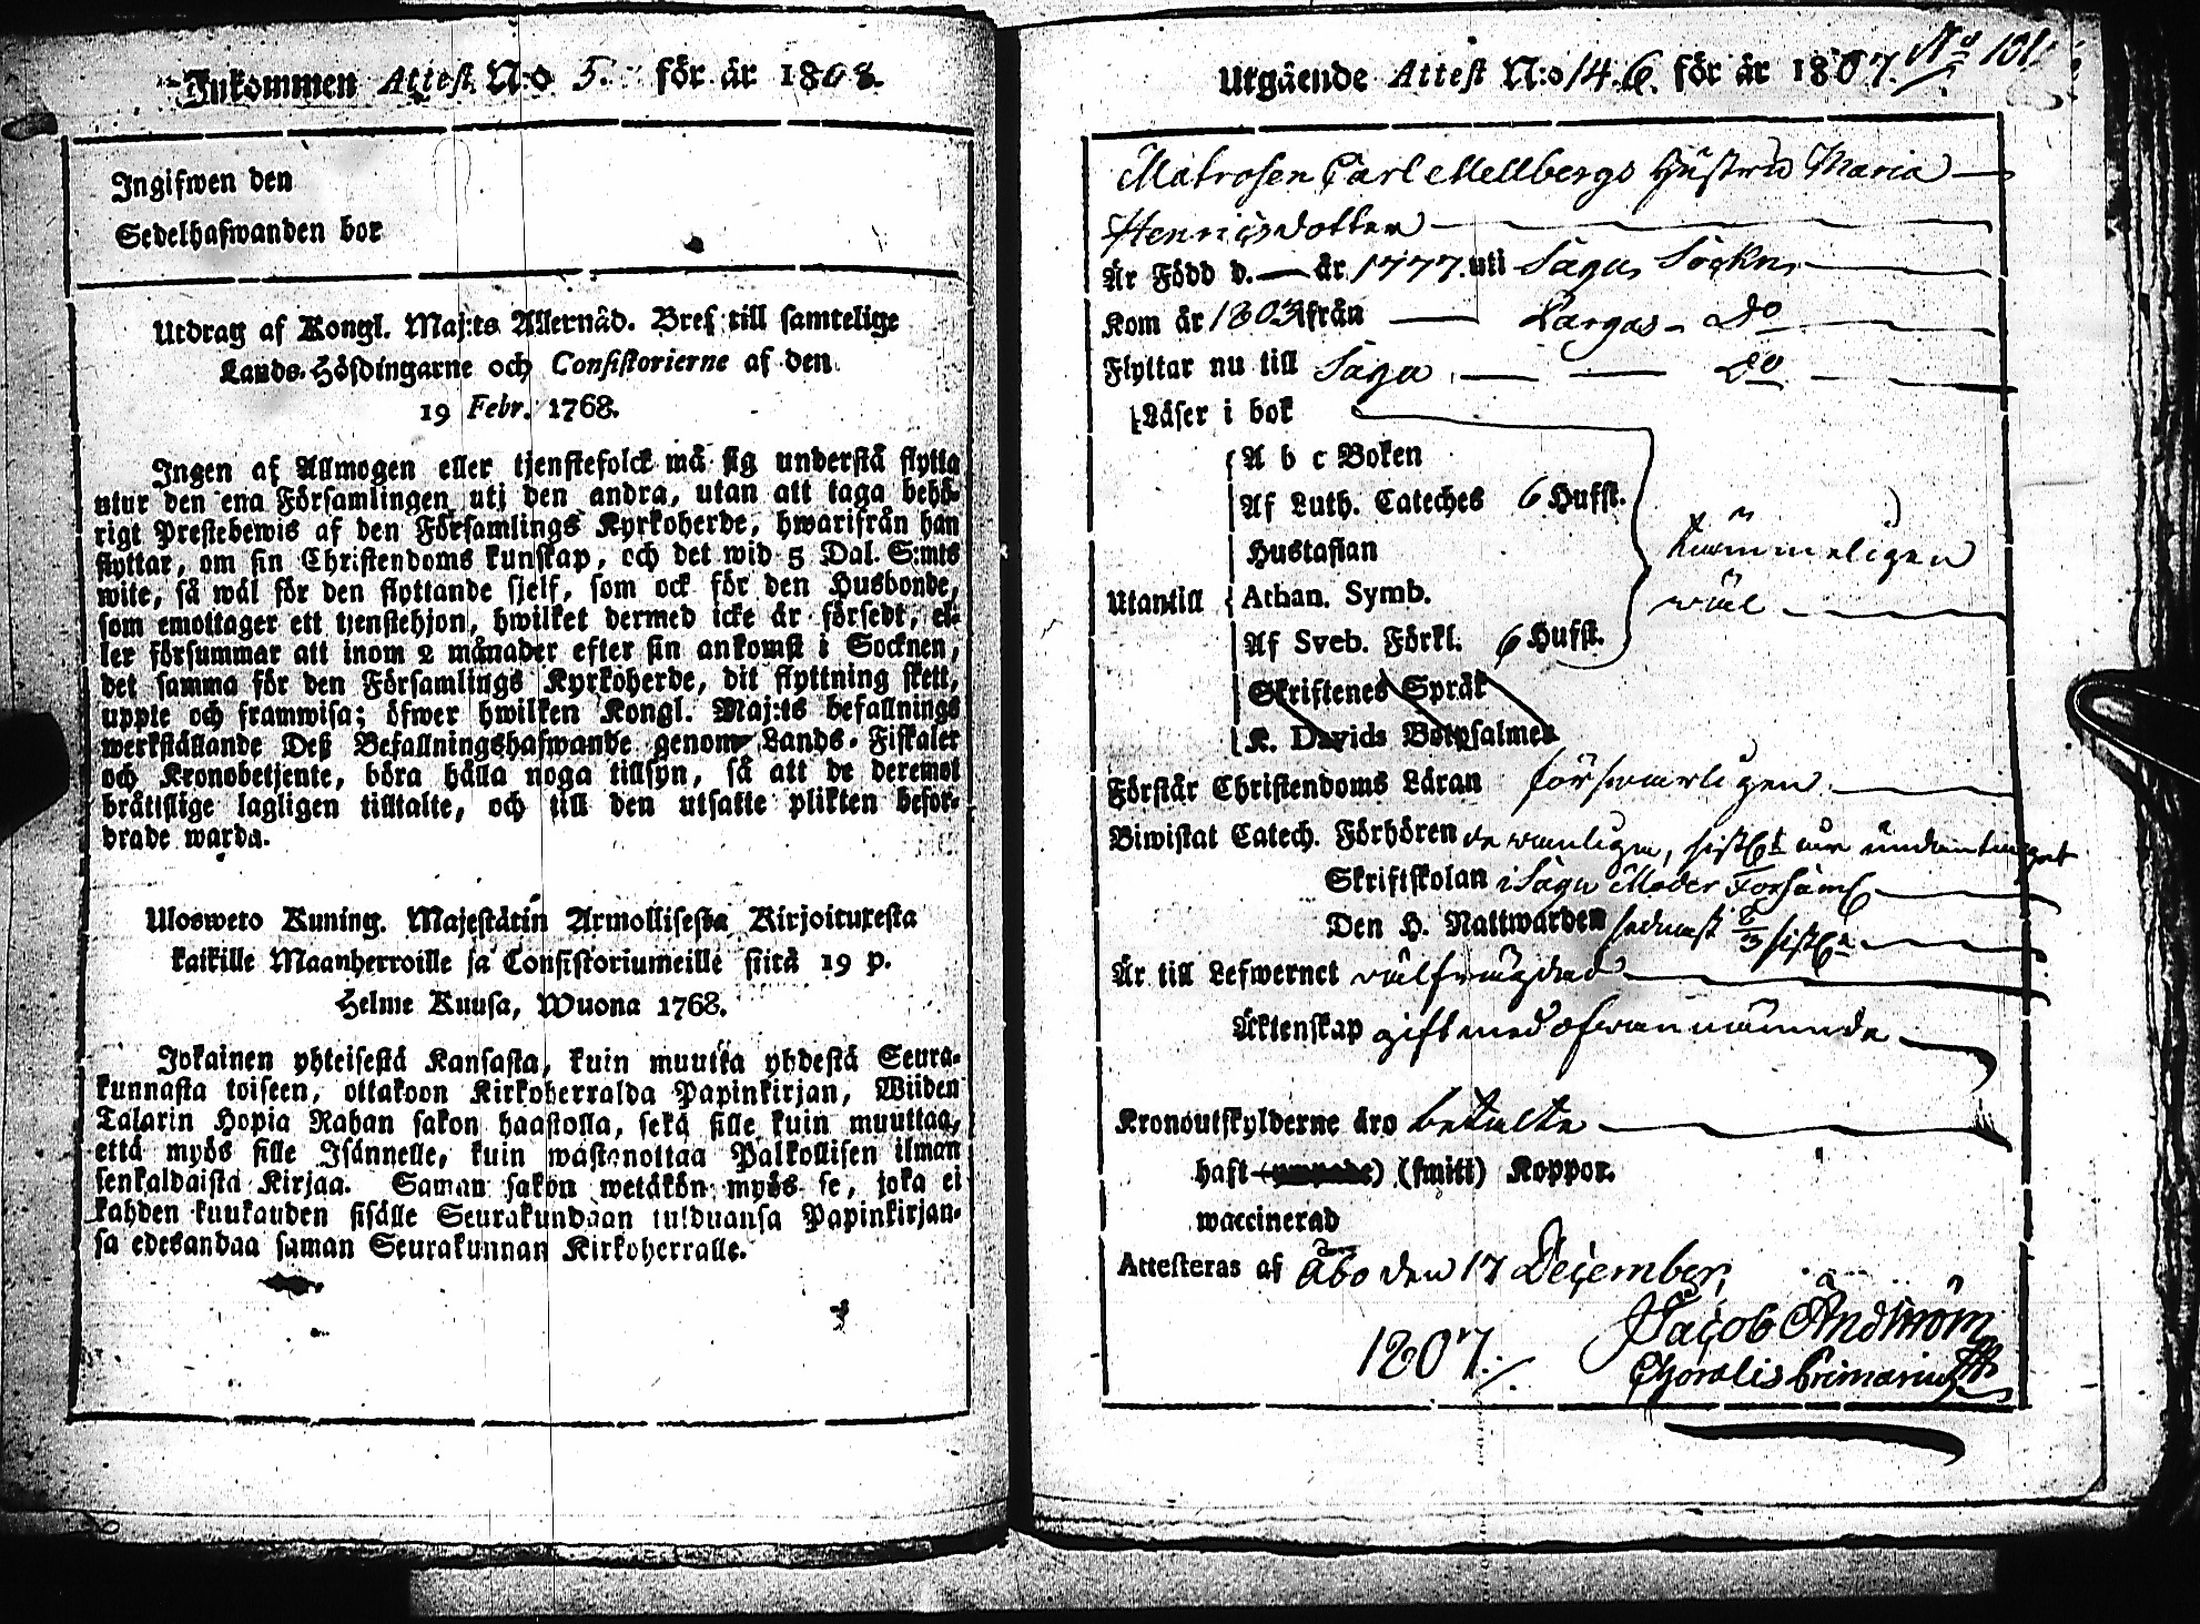 Inkommen Attest N:o 5. för år 1808.
Ingifwen den
Sedelhafwanden bor
Utdrag af Kongl. Maj:ts Allernåd. Bref till samtelige
Lands-Höfdingarne och Consistorierne af den
19 Febr. 1768.
Ingen af Allmogen eller tjenstefolck må sig understå flytta
utur den ena Församlingen uti den andra, utan att taga behö-
rigt Prestebewis af den Församlings Kyrkoherde, hwarifrån han
flyttar, om sin Christendoms kunskap, och det wid 5 Dal. S:mts
wite, så wäl för den flyttande sjelf, som ock för den Husbonde,
som emottager ett tjenstehjon, hwilket dermed icke är försedt, el-
ler försummar att inom 2 månader efter sin ankomst i Socknen,
det samma för den Församlings Kyrkoherde, dit flyttning skett,
uppte och framwisa; öfwer hwilken Kongl. Maj:ts befallnings
werkställande Deß Befallningshafwande genom Lands-Fiskaler
och Kronobetjente, böra hålla noga tillsyn, så att de deremot
bråttslige lagligen tilltalte, och till den utsatte plikten befor-
drade warda.
Uloswero Kuning. Majestätin Armollisesta Kirjoituresta
kaikille Maanherroille ja Consistoriumeille siitä 19 p.
Helme Kuusa, Wuona 1768.
Jokainen yhteisestä Kansasta, kuin muutta yhdestä Seura-
kunnasta toiseen, ottakoon Kirkoherralda Papinkirjan, Wiiden
Talarin Hopia Rahan sakon haastolla, sekä sille kuin muuttaa,
että myös sille Isännelle, kuin wastanottaa Palkollisen ilman
senkaldaista Kirjaa. Saman sakon wetäkön myös se, joka ei
kahden kuukauden sisälle Seurakundaan tulduansa Papinkirjan-
sa edesandaa saman Seurakunnan Kirkoherralle.
Utgående Attest N:o 146. för år 1807. No 101
Matrosen Carl Mellbergs Hustru Maria
Henricsdotter
Är Född d. — år 1777. uti Sagu Sockn
Kom år 1803 ifrån — Pargas - Do
Flyttar nu till Sagu — Do
Läser i bok
A b c Boken
Af Luth. Cateches 6 Hufst.
Hustaflan
Utantill Athan. Symb.
Af Sveb. Förkl. 6 Hufst.
Skriftenes Språk
K. Davids Botpsalmer
nämmeligen
wäl
Förstår Christendoms Läran förswarligen
Biwistat Catech. Förhören de wanligen, sistl. är undantaget
Skriftskolan i Sagu Moder Församl.
Den H. Nattwarden sednast 8/3 sistl.
Är till Lefwernet wälfrägdad
Äktenskap gift med ofwannämnde
Kronoutskylderne äro betalte
haft (smitt) Koppor.
waccinerad
Attesteras af Åbo den 17 December,
1807. Jacob Åndström
Choralis Primarius